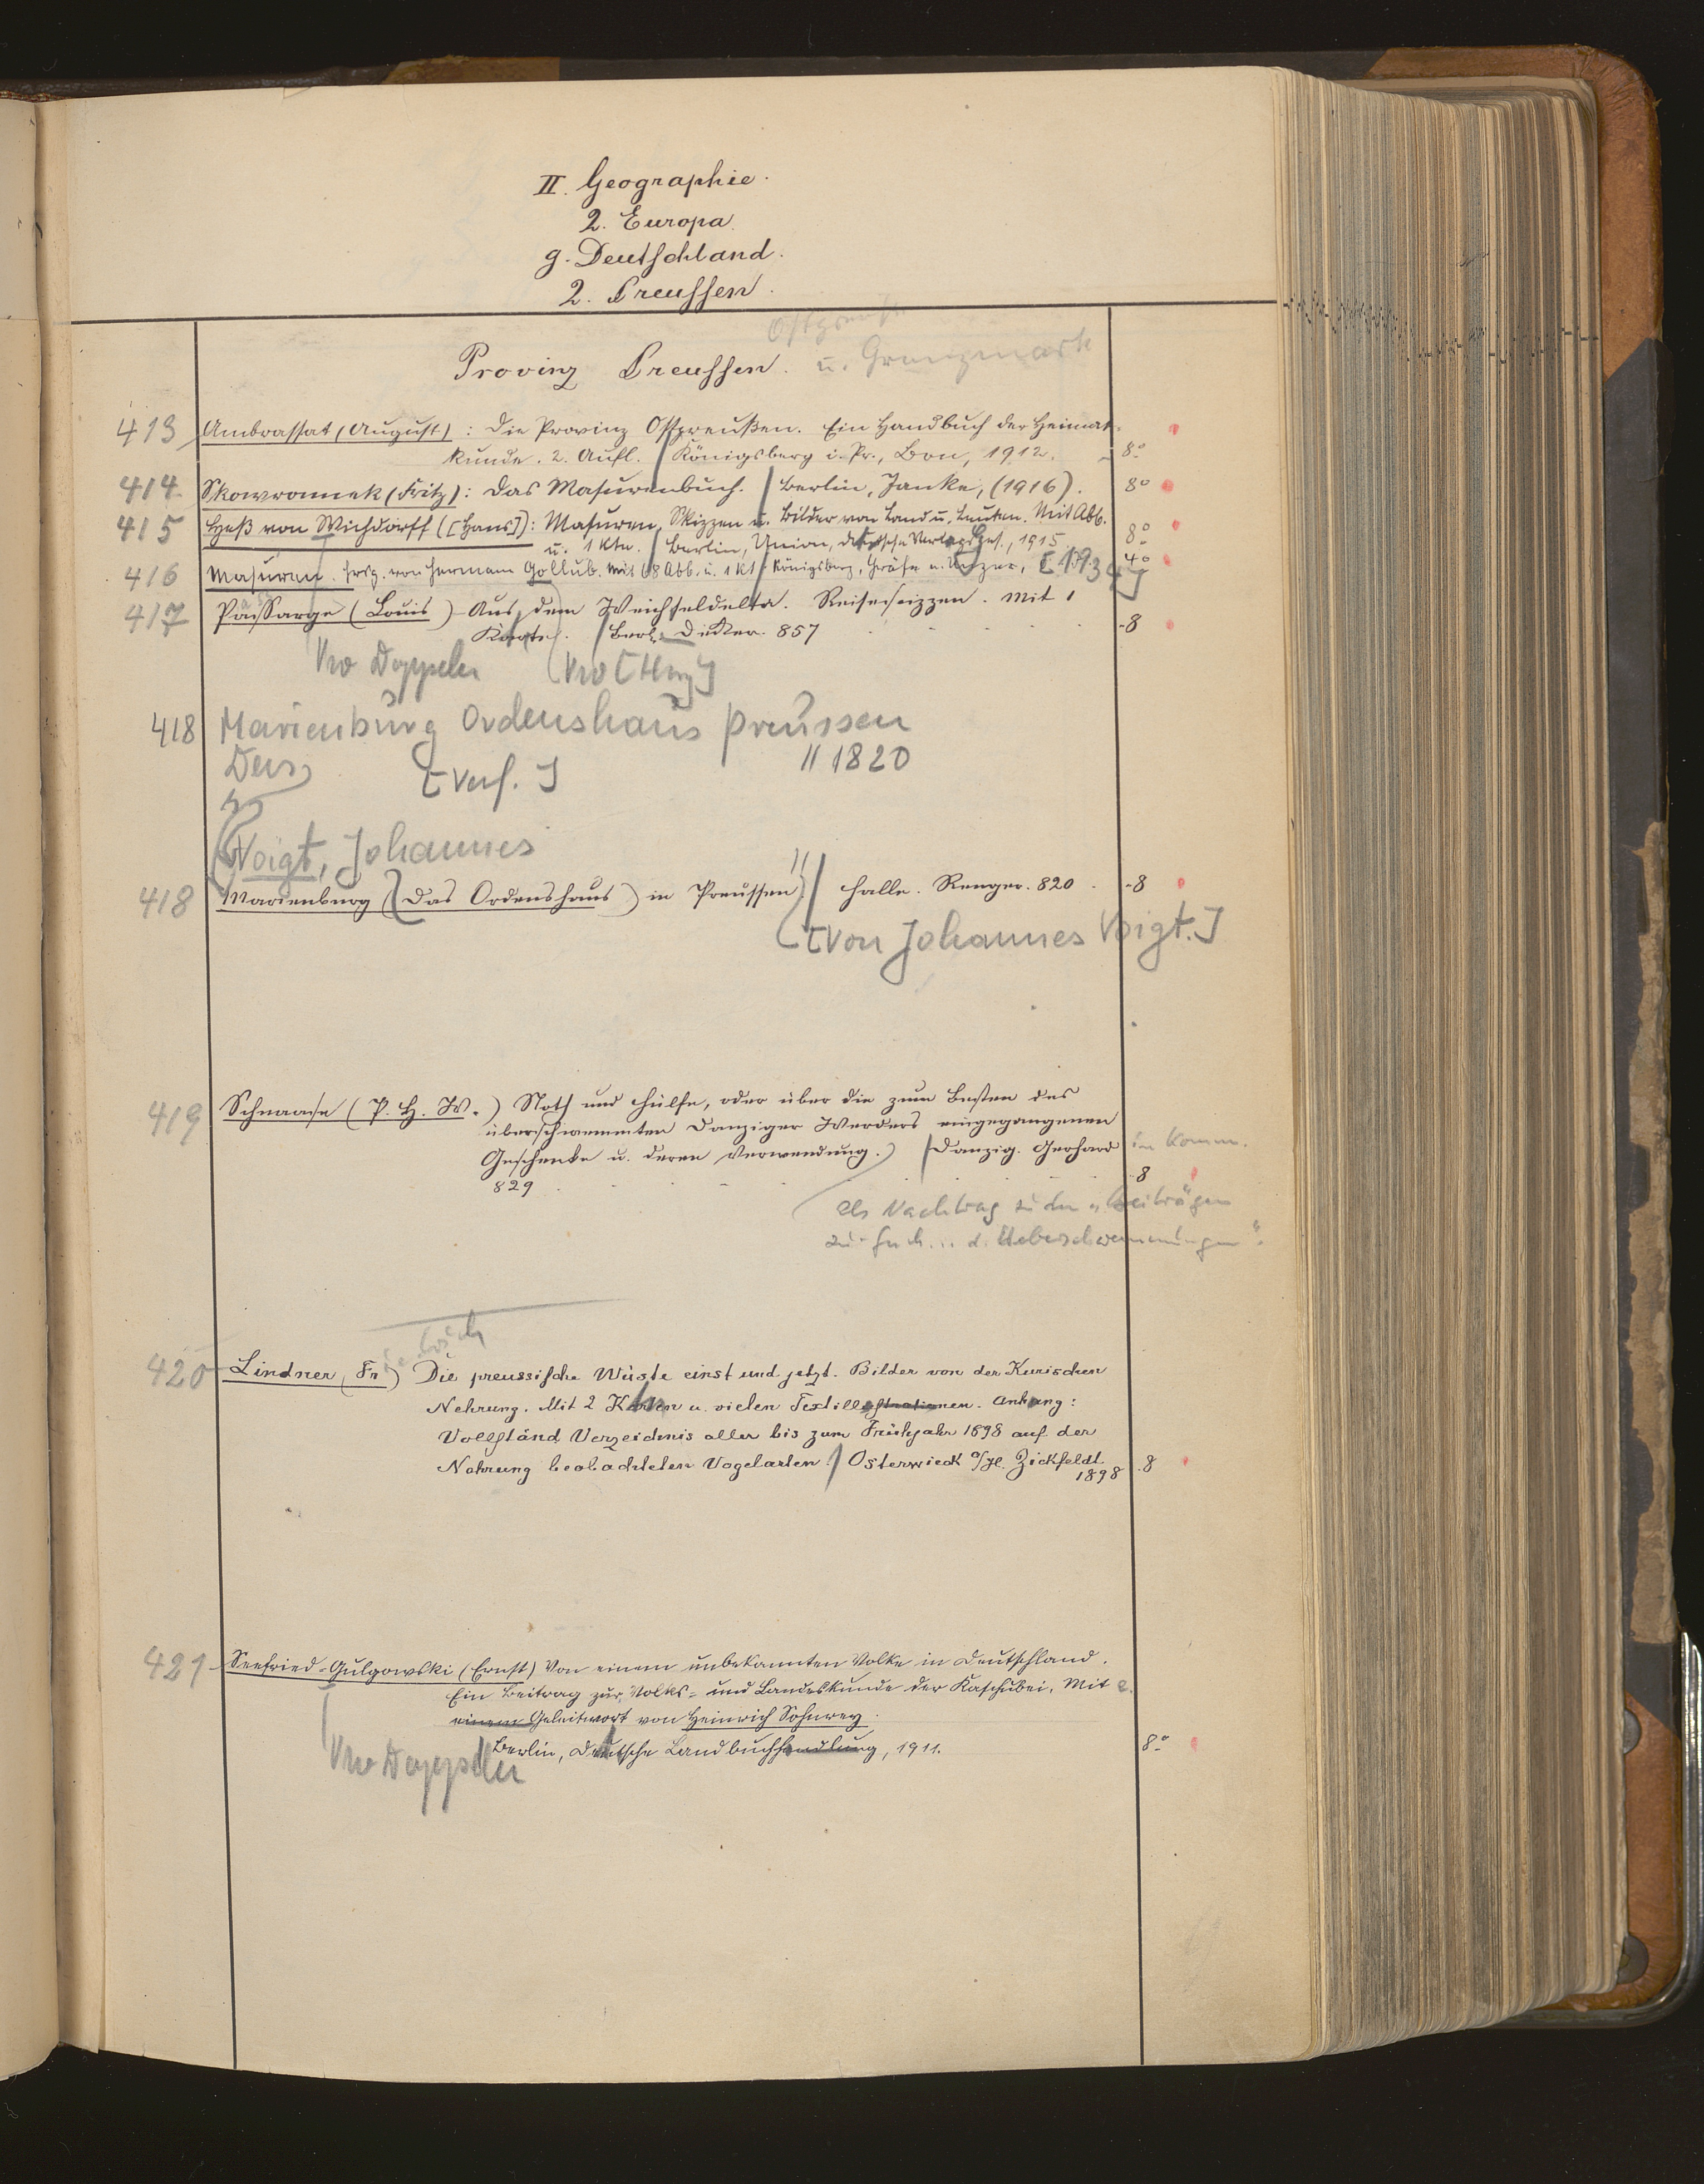 II. Geographie.
2. Europa.
g. Deutschland.
2. Preussen.
Ostpreuß.
Provinz Preussen. u. Grenzmark
413 Ambrassat (August): Die Provinz Ostpreußen. Ein Handbuch der Heimat-
kunde. 2. Aufl. / Königsberg i. Pr., Bon, 1912. - 8°
414 Skowronnek (Fritz): Das Masurenbuch. / Berlin, Janke, (1916). 8°
415 Heß von Wichdorff ([Hans]): Masuren, Skizzen u. Bilder von Land u. Leuten. Mit Abb.
u. 1 Kte. / Berlin, Union, deutsche Verlagsges., 1915 8°
416 Masuren. Hrsg. von Hermann Gollub. Mit 68 Abb. u. 1 Kt / Königsberg, Gräfe u. Unzer, [1934] 4°
417 Passarge (Louis) Aus dem Weichseldelta. Reiseskizzen. Mit 1
Karte. / Berl. Decker. 857 -8
Doppeln
418 Marienburg Ordenshaus Preussen
Ders [Verf.] // 1820
Voigt, Johannes
418 Marienburg (Das Ordenshaus) in Preussen / Halle. Renger. 820 -8
[von Johannes Voigt.]
419 Schnaase (P. H. W.) Noth und Hülfe, oder über die zum Besten des
überschwemmten Danziger Werders eingegangenen
Geschenke u. deren Verwendung.) / Danzig. Gerhard in Komm.
829 8
Als Nachtrag zu den "Beiträgen
zu d. Ueberschwemmungen".
iedrich
420 Lindner (Fr) Die preussische Wüste einst und jetzt. Bilder von der Kurischen
Nehrung. Mit 2 Karten u. vielen Textillustrationen. Anhang:
Vollständ. Verzeichnis aller bis zum Frühjahr 1898 auf der
Nehrung beobachteten Vogelarten / Osterwieck a/H. Zickfeldt.
1898 8
421 Seefried-Gulgowski (Ernst) Von einem unbekannten Volke in Deutschland.
Ein Beitrag zur Volks- und Landeskunde der Kaschubei. Mit e.
einem Geleitwort von Heinrich Sohnrey.
Berlin, Deutsche Landbuchhandlung, 1911. 8°
Doppeln